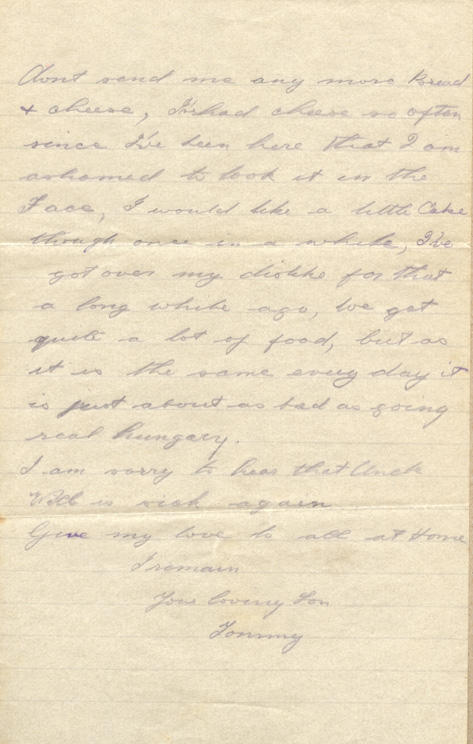 dont send me any more Bread
& cheese, I've had cheese so often
since I've been here that I am
ashamed to look it in the
Face, I would like a little Cake
though once in a while, I've
got over my dislike for that
a long while ago, We get
quite a lot of food, but as
it is the same every day it
is just about as bad as going
real hungary.
I am sorry to hear that Uncle
Will is sick again
Give my love to all at Home
I remain
Your loving Son
Tommy